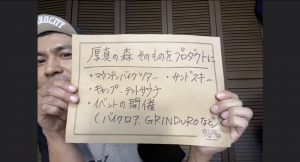 厚真の森 そのものをプロダクトに
・マウンテンバイクツアー ・サンドスキー
・キャンプ、テントサウナ
・イベントの開催
(バイクロア、GRINDUROなど)